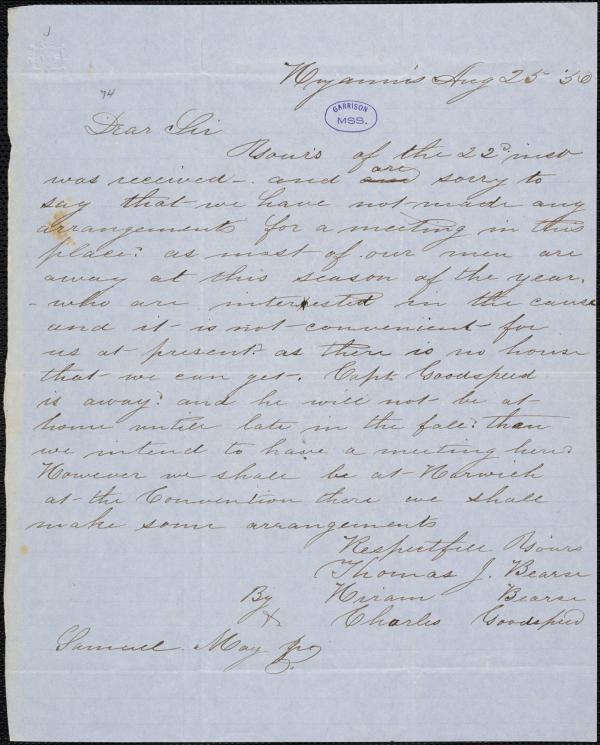 Hyannis Aug 25 '56
74
GARRISON
MSS.
Dear Sir
Yours of the 22d inst
was received - and are sorry to
say that we have not made any
arrangements for a meeting in this
place: as most of our men are
away at this season of the year,
- who are interested in the cause
and it is not convenient for
us at present: as there is no house
that we can get. Capt. Goodspeed
is away: and he will not be at
home untill late in the fall: then
we intend to have a meeting here:
However we shall be at Harwich
at the Convention there we shall
make some arrangements
Respectfull Yours
Thomas J. Bearse
By Hiram Bearse
Charles Goodspeed
Samuel May Jr